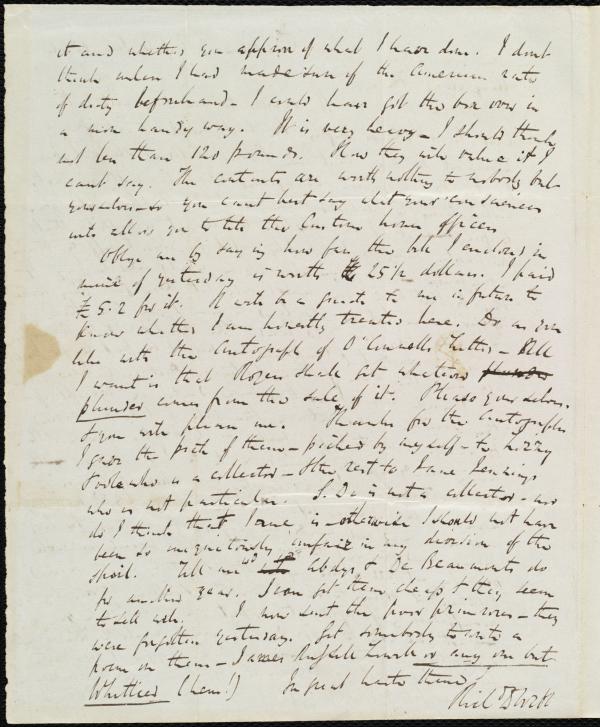 it and whether you approve of what I have done. I dont
think unless I had made sure of the American rate
of duty beforehand - I could have got the box over in
a more handy way. It is very heavy - I should think
not less than 120 pounds. How they will value it I
cant say. The contents are worth nothing to nobody but
yourselves - so you cant but say what your consciences
will allow you to tell the Custom house officers
Oblige me by saying how far the bill I enclosed in
mine of yesterday is worth 25 1/2 dollars. I paid
£5.2 for it. It will be a guide to me in future to
know whether I am honestly treated here. Do as you
like with the Autograph of O'Connell's letter - All
I want is that Rogers shall get whatever
plunder comes from the sale of it. Please yourselves
& you will please me. Thanks for the Autographs
I gave the pick of them - picked by myself - to Lizzy
Poole who is a collector - & the rest to Jane Jennings
who is not particular. S. D. is not a collector - nor
do I think that Irene is - otherwise I should not have
been so iniquitously unfair in my division of the
spoil. Tell me would Abdys & De Beaumonts do
for another year. I can get them cheap & they seem
to sell well. I now send the poor primroses - they
were forgotten yesterday. Get somebody to write a
poem on them - James Russell Lowell or any one but
Whittier (hem!) In great haste thine
Rich<sup>d</sup> D Webb